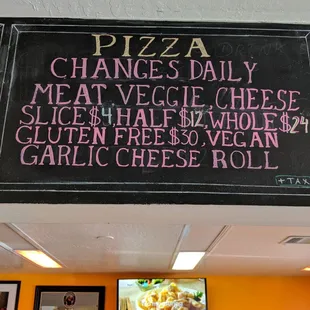 PIZZA
CHANGES DAILY
MEAT VEGGIE, CHEESE
SLICE $4 HALF $12, WHOLE $24
GLUTEN FREE $30, VEGAN
GARLIC CHEESE ROLL
+TAX